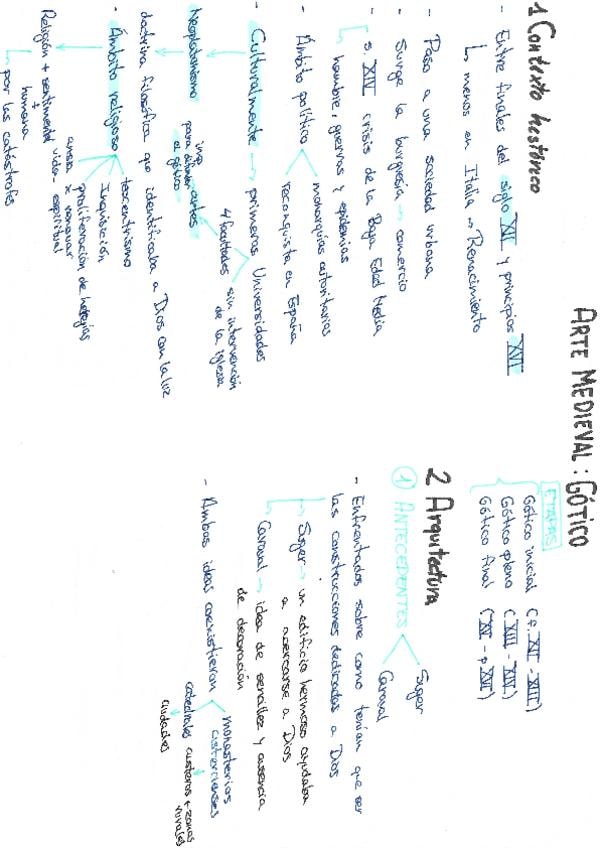 ARTE MEDIEVAL: GÓTICO
ETAPAS
Gótico inicial (f. XII - XIII)
Gótico pleno (XIII - XIV)
Gótico final (XV - p XVI)
1 Contexto histórico
- Entre finales del siglo XII y principios XVI
↳ menos en Italia → Renacimiento
- Paso a una sociedad urbana
- Surge la burguesía → comercio
- s. XIV crisis de la Baja Edad Media
↳ hambre, guerras y epidemias
- Ámbito político
monarquías autoritarias
reconquista en España
- Culturalmente → primeras Universidades
4 facultades
sin intervención
de la iglesia
artes
imp
para difundir
el gótico
Neoplatonismo
doctrina filosófica que identificaba a Dios con la luz
- Ámbito religioso
teocentrismo
Inquisición
proliferación de herejías
ansia x renovar
Religión + sentimental vida espiritual
+
humana
↳ por las catástrofes
2 Arquitectura
① ANTECEDENTES
Suger
Claraval
- Enfrentados sobre como tenían que ser
las construcciones dedicadas a Dios
Suger → un edificio hermoso ayudaba
a acercarse a Dios
Claraval → idea de sencillez y ausencia
de decoración
- Ambas ideas coexistieron
monasterios
cistercienses
austeros + zonas
rurales
catedrales
ciudades